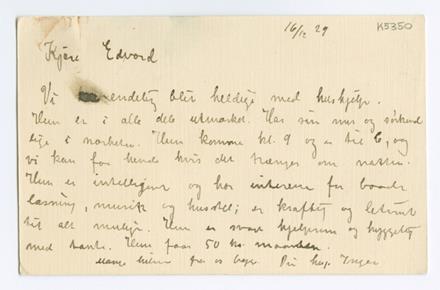 16/12 29
K5350
Kjære Edvard
Vi endelig blit heldige med huskjelp.
Hun er i alle dele utmerket. Har sin mor og søskend
lige i nærheten. Hun kommer kl. 9 og er til 6, og
vi kan faa hende hvis det trænges om natten.
Hun er intelligent og har interesse for baade
læsning, musik og husstel; er kraftig og
til alt mulig. Hun er svær hjelpsom og hyggelig
med tante. Hun faar 50 kr. maaneden.
Mange hilsner fra os begge. Din Inger